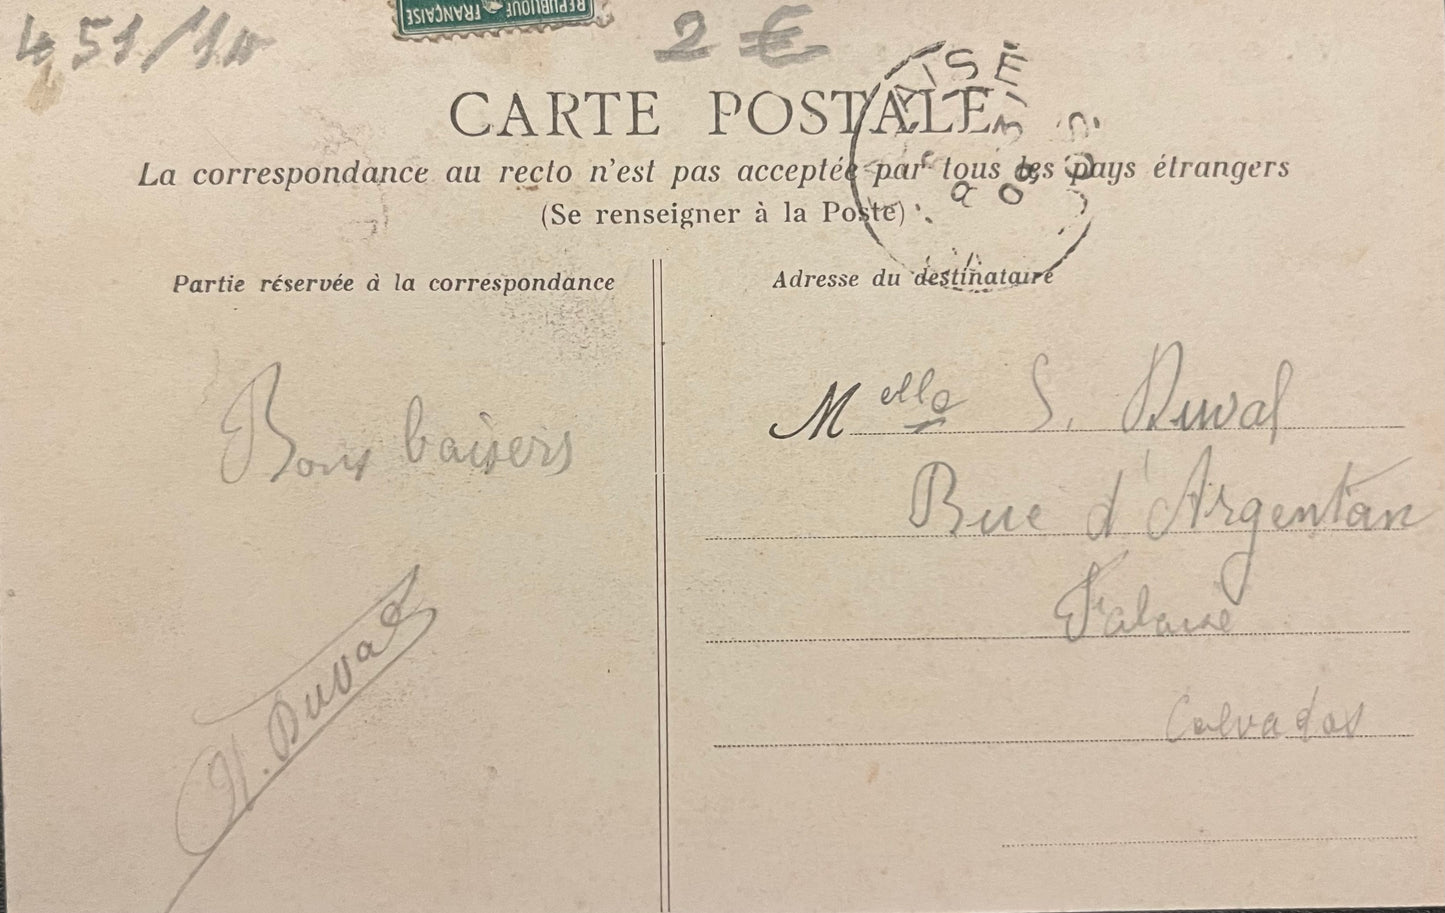 451/10
RÉPUBLIQUE FRANÇAISE
2 €
CARTE POSTALE
La correspondance au recto n'est pas acceptée par tous les pays étrangers
(Se renseigner à la Poste)
Partie réservée à la correspondance
Bons baisers
Duval
Adresse du destinataire
Melle S. Duval
Rue d'Argentan
Falaise
Calvados